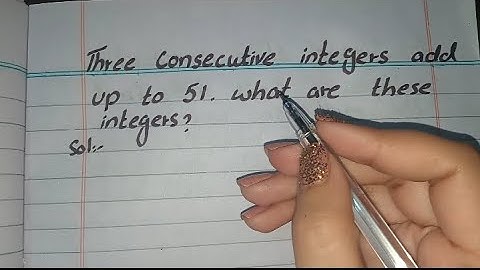 Three Consecutive integers add
up to 51. what are these
integers?
Sol:-